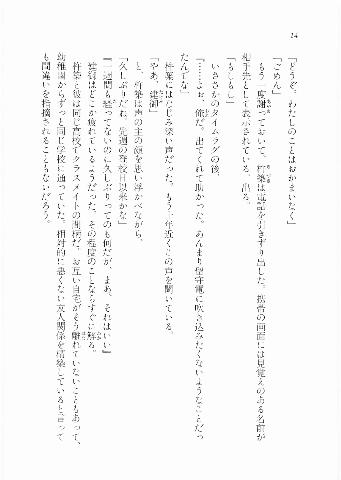 14
「どうぞ。わたしのことはおかまいなく」
「ごめん」
もう一度謝っておいて、柊築は電話を引きずり出した。携帯の画面には見覚えのある名前が
相手先として表示されている。出る。
「もしもし」
いささかのタイムラグの後、
『……よぉ、俺だ。出てくれて助かった。あんまり留守電に吹き込みたくないようなことだっ
たんでな』
柊築にはなじみ深い声だった。もう十年近くこの声を聞いている。
「やあ、建御」
と、柊築は声の主の顔を思い浮かべながら、
「久しぶりだね。先週の登校日以来かな」
『一週間も経ってないのに久しぶりってのも何だが、まあ、それはいい』
建御はどこか疲れているようだった。その程度のことならすぐに解る。
柊築と彼は同じ高校でクラスメイトの間柄だ。お互い自宅がそう離れていないこともあって、
幼稚園からずっと同じ学校に通っていた。相対的に悪くない友人関係を構築していると言って
も間違いを指摘されることもないだろう。